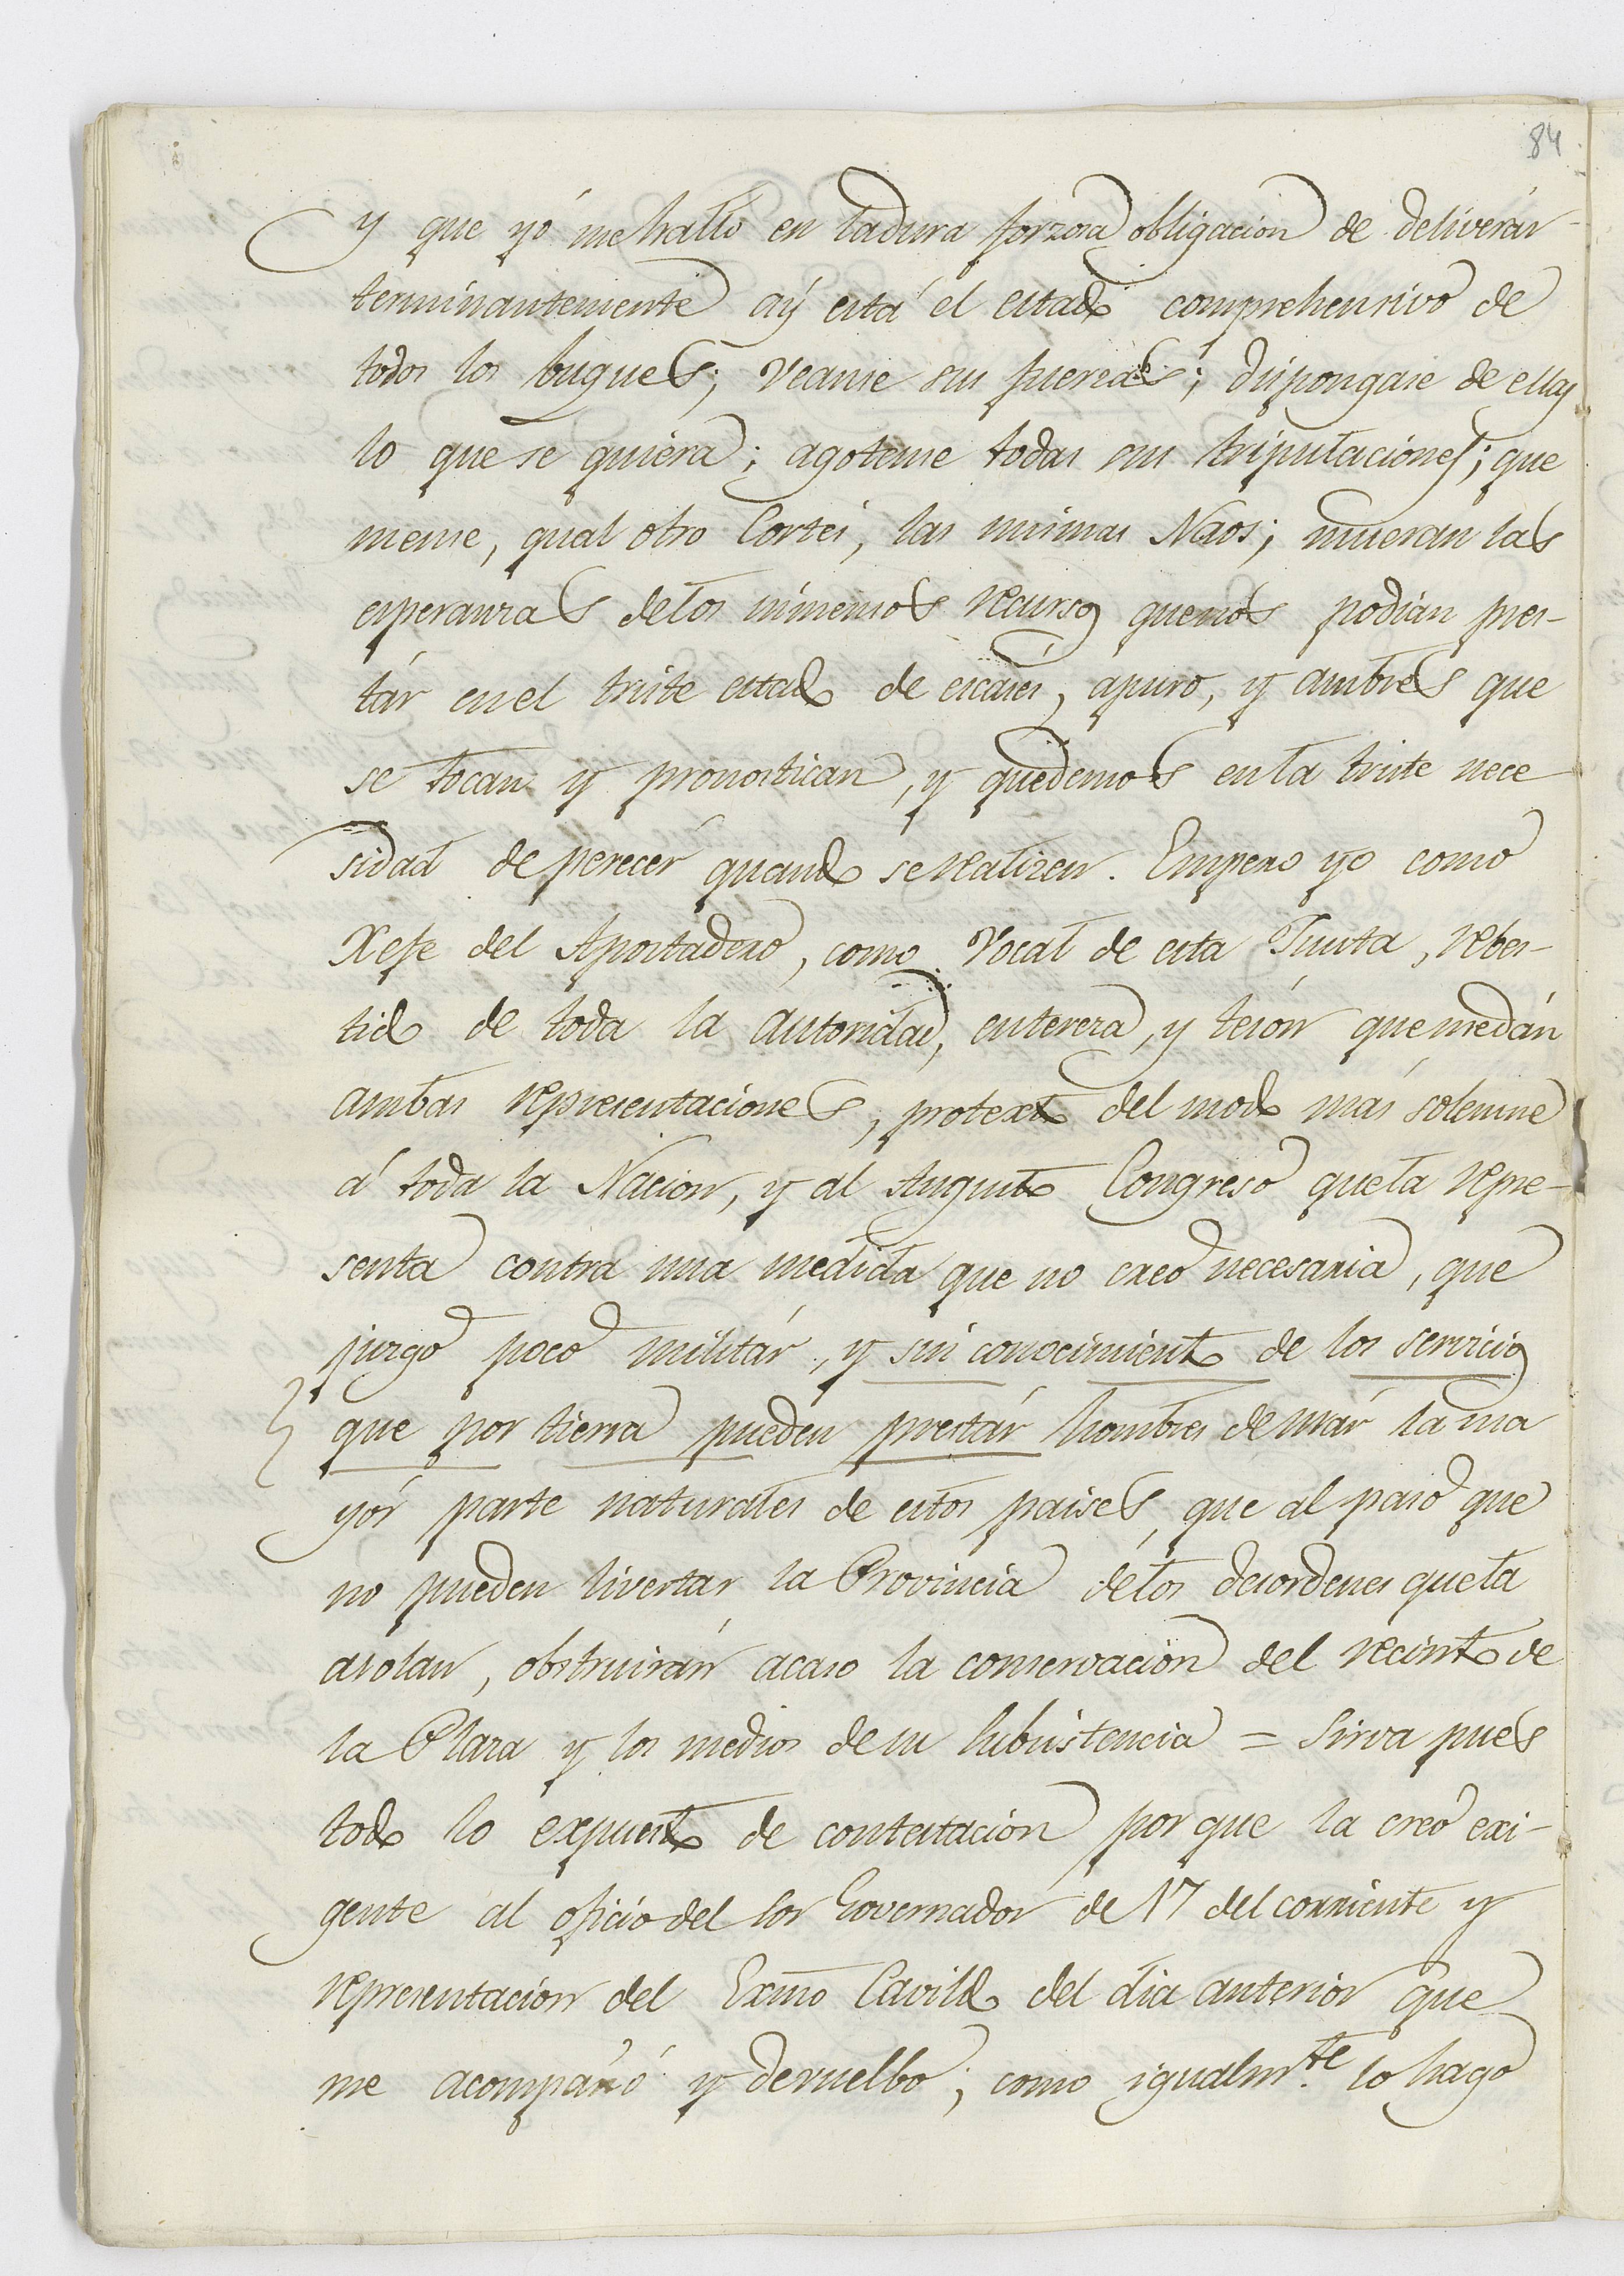 84
y que yó me hallo en la dura forzosa obligacion de deliverár
terminantemente ay está el estado comprehensivo de
todos los buques; veanse sus fuerzas; dispongase de ellas
lo que se quiera; agotense todas sus tripulaciones; que
mense, qual otro Cortés, las mismas Naos; mueran las
esperanzas de los inmensos recursos que nos podian pres-
tár en el triste estado de escasés, apuro, y ambres que
se tocan y pronostican, y quedemos en la triste nece
sidad de perecér quando se realizen. Empero yo como
Xefe del Apostadero, como Vocal de esta Junta, rebes-
tido de toda la autoridad, entereza, y tesón que me dán
ambas representaciones, protexto del modo más solemne
á toda la Nacion, y al Augusto Congreso que la repre-
senta contra una medida que no creo necesaria, que
juzgo poco militár, y sin conocimiento de los servicios
que por tierra pueden prestár hombres de már la ma
yór parte naturales de estos paises, que al paso que
no pueden livertar la Provincia de los desordenes que la
asolan, obstruirán acaso la conservacion del recinto de
la Plaza y los medios de su subsistencia = Sirva pues
todo lo expuesto de contestacion por que la creo exi-
gente al oficio del Sor Governador de 17 del corriente y
representacion del Exmo Cavildo del dia anterior que
me acompañó y devuelbo; como igualmte. lo hago